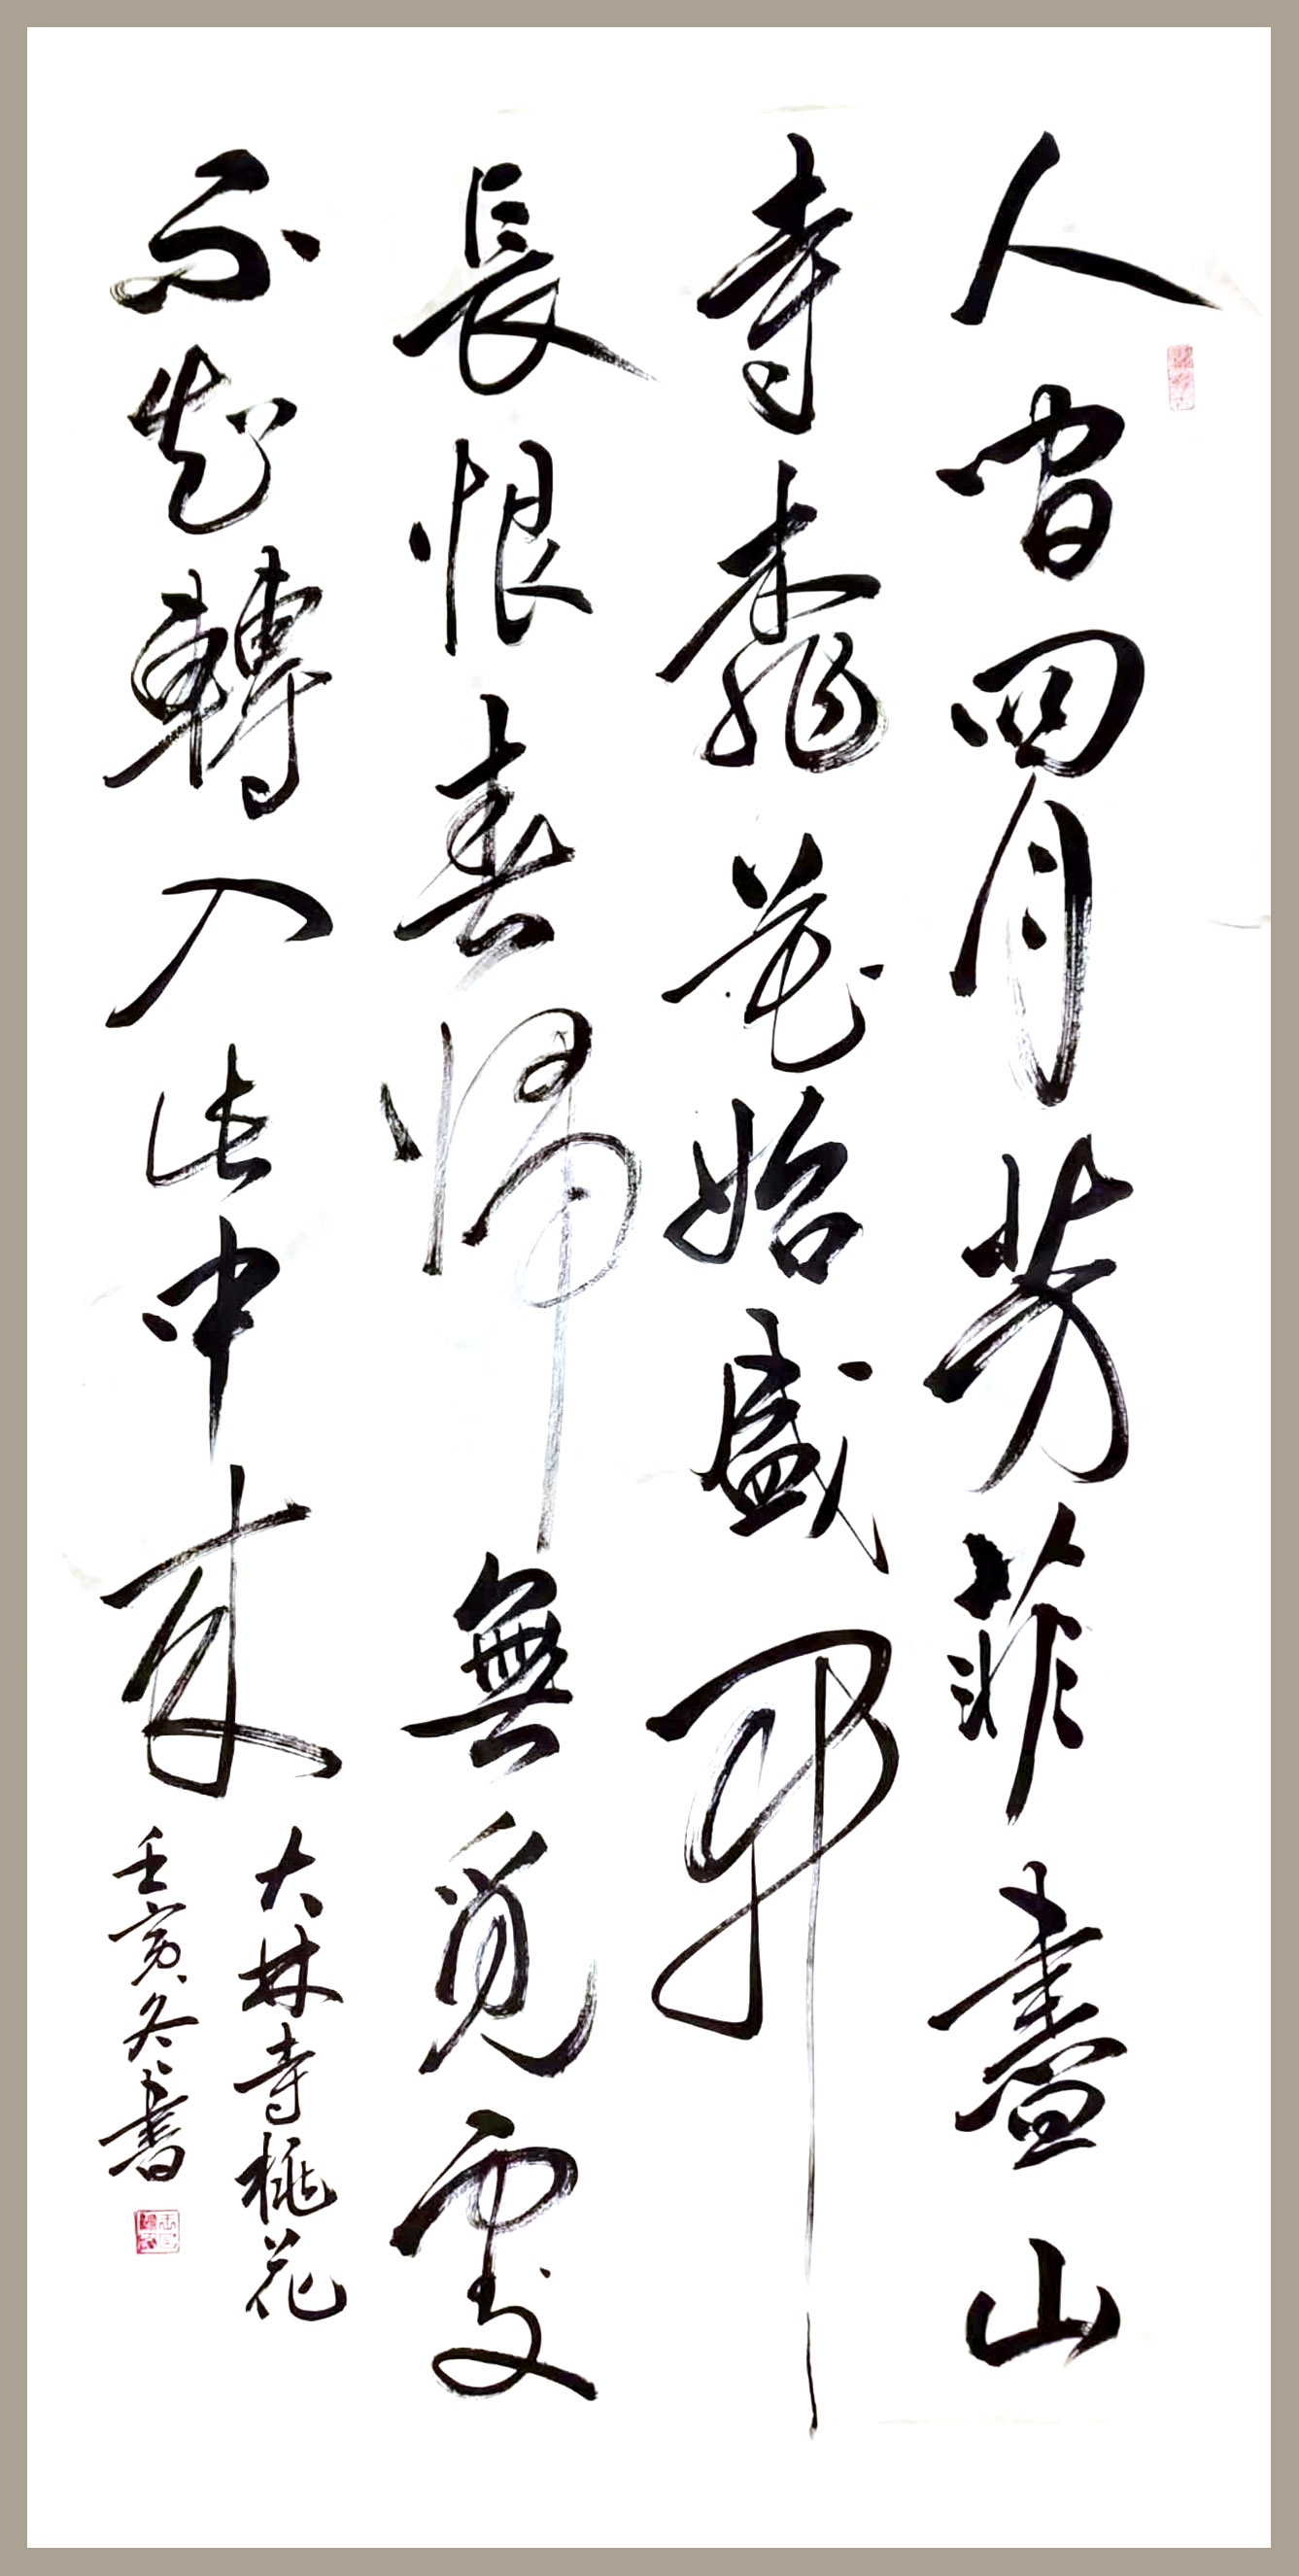 人間四月芳菲盡山
寺桃花始盛開
長恨春歸無覓處
不知轉入此中來
大林寺桃花
壬寅冬書